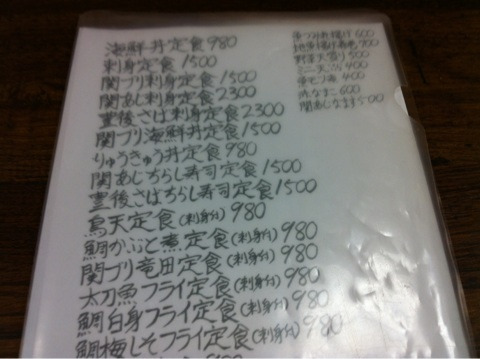 海鮮丼定食 980
刺身定食 1500
関ブリ刺身定食 1500
関あじ刺身定食 2300
豊後さば刺身定食 2300
関ブリ海鮮丼定食 1500
りゅうきゅう丼定食 980
関あじちらし寿司定食 1500
豊後さばちらし寿司定食 1500
鳥天定食(刺身台) 980
鯛かぶと煮定食(刺身台) 980
関ブリ竜田定食(刺身台) 980
太刀魚フライ定食(刺身台) 980
鯛白身フライ定食(刺身台) 980
鯛梅しそフライ定食(刺身台) 980
魚つみれ揚げ 600
地魚揚げ 700
野菜天盛り 500
ミニ天 400
400
赤なまこ 600
関あじなます 500